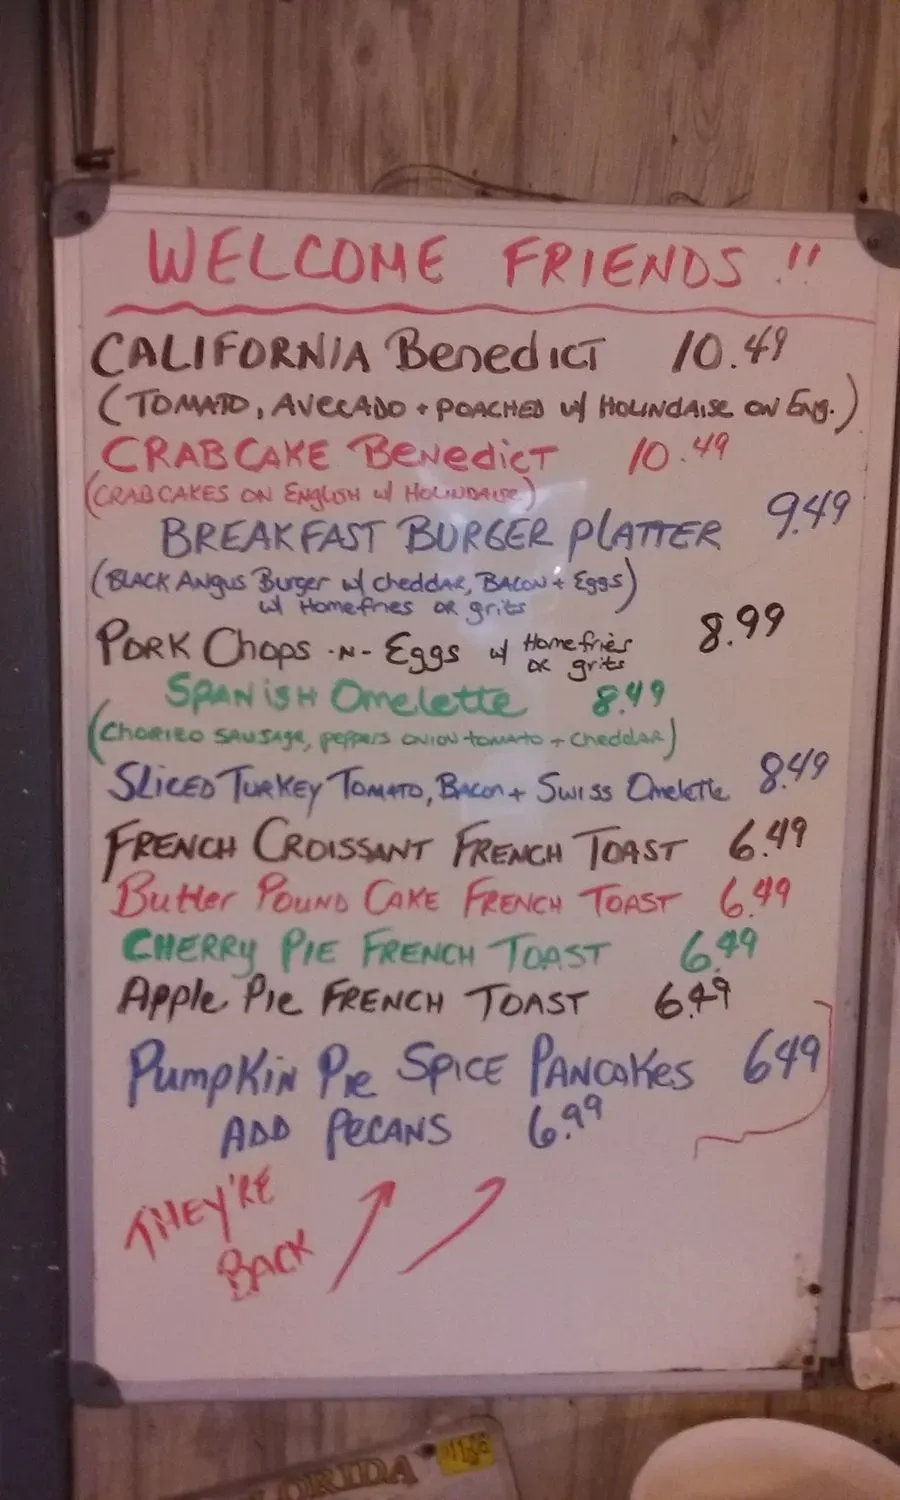 WELCOME FRIENDS !!
CALIFORNIA Benedict 10.49
(TOMATO, AVECADO + POACHED w/ HOLINDAISE ON Eng.)
CRABCAKE Benedict 10.49
(CRABCAKES ON English w/ HOLINDAISE)
BREAKFAST BURGER PLATTER 9.49
(BLACK Angus Burger w/ cheddar, BACON + Eggs)
w/ Homefries OR grits
PORK Chops -N- Eggs w/ Homefries OR grits 8.99
SPANISH Omelette 8.49
(CHORIEO SAUSAge, peppers ONION TOMATO + CheddAR)
SLICED TURKEY TOMATO, BACON + SWISS Omelette 8.49
FRENCH CROISSANT FRENCH TOAST 6.49
Butter POUND CAKE FRENCH TOAST 6.49
CHERRY PIE FRENCH TOAST 6.49
Apple Pie FRENCH TOAST 6.49
PumpKin Pie SPICE PANCAKES 649
ADD PECANS 6.99
THEY'RE
BACK
LORIDA